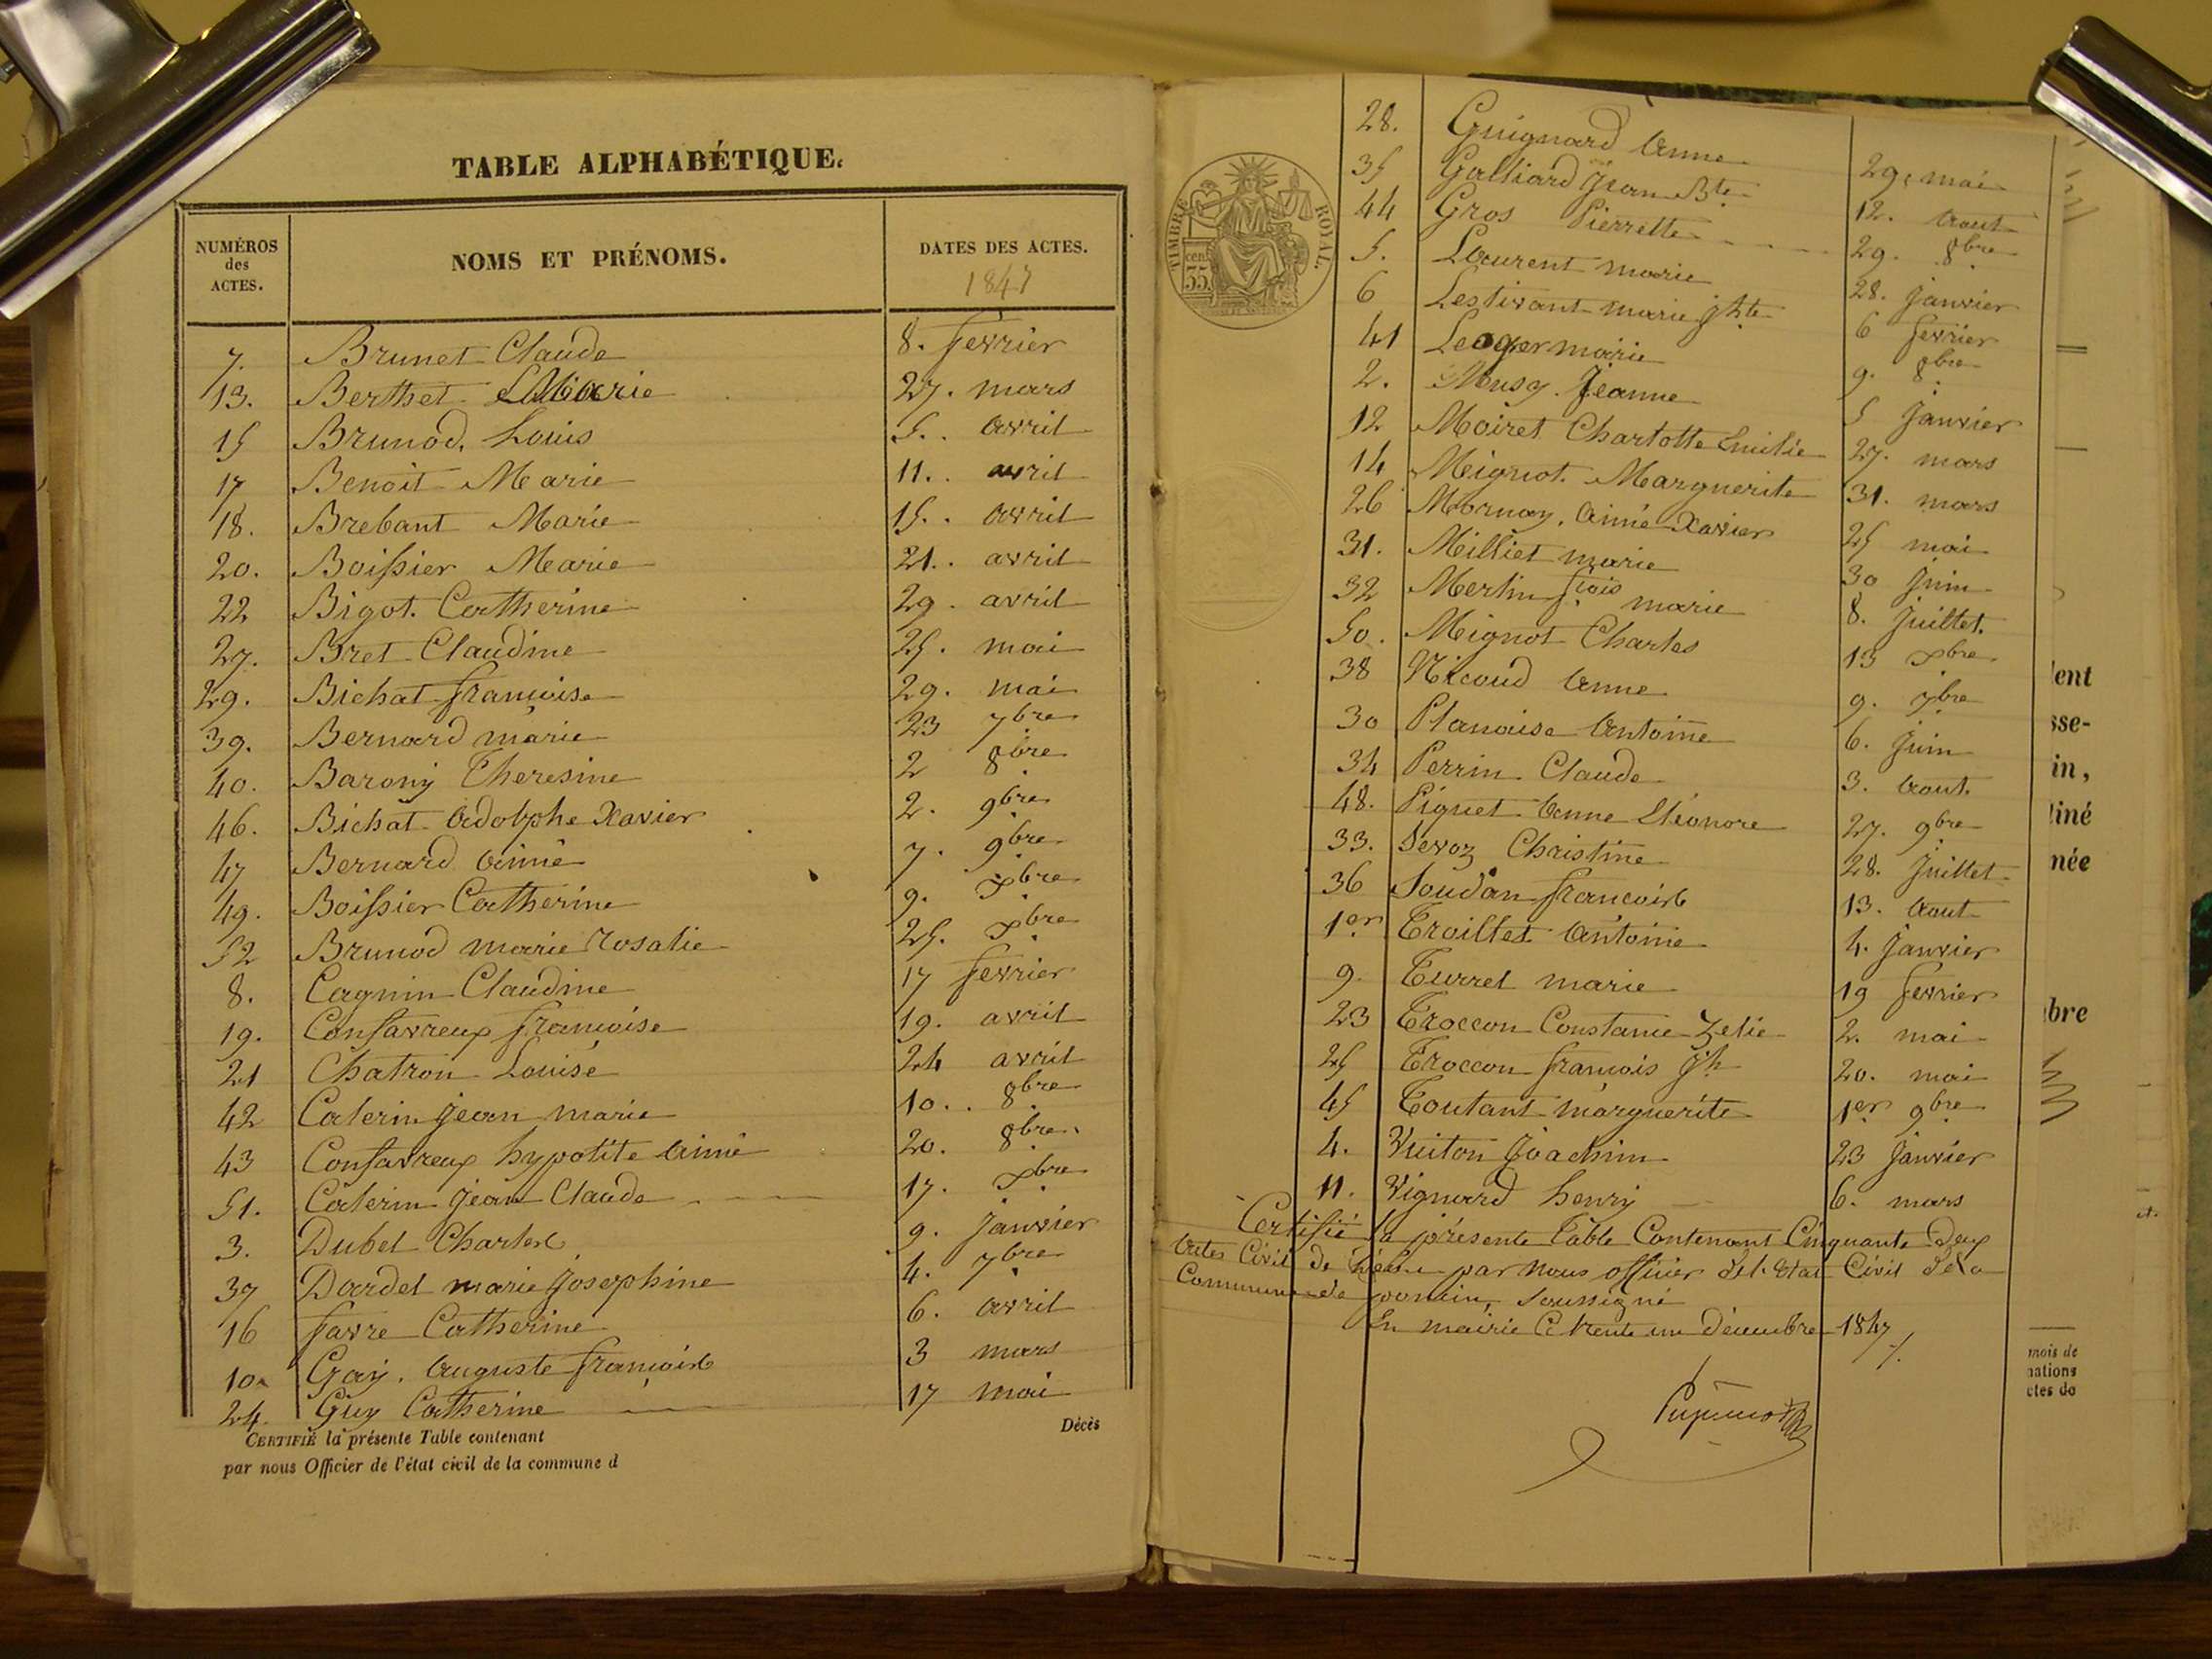 TABLE ALPHABÉTIQUE.
NUMÉROS des ACTES. NOMS ET PRÉNOMS. DATES DES ACTES. 1847
7. Brunet Claude 8. fevrier
13. Berthet Marie 27. mars
15 Brunod, Louis 5. avril
17 Benoit Marie 11. avril
18. Brebant Marie 15. avril
20. Boissier Marie 21. avril
22 Bigot. Catherine 29. avril
27. Bret Claudine 25. mai
29. Bichat françoise 29. mai
39. Bernard marie 23 7bre
40. Barony Theresine 2 8bre
46. Bichat Adolphe Xavier 2. 9bre
47 Bernard Aimé 7. 9bre
49. Boissier Catherine 9. Xbre
52 Brunod marie rosalie 25. Xbre
8. Cagnin Claudine 17 fevrier
19. Confavreux françoise 19. avril
21 Chatron Louise 24 avril
42 Caterin jean marie 10. 8bre
43 Confavreux hypolite aimé 20. 8bre
51. Caterin jean Claude 17. Xbre
3. Dubet Charles 9. janvier
37 Dardel marie josephine 4. 7bre
16 favre Catherine 6. avril
10. Gay. Auguste françois 3 mars
24. Guy Catherine 17 mai
CERTIFIÉ la présente Table contenant
par nous Officier de l'état civil de la commune d
Décès
TIMBRE ROYAL.
cen 35.
28. Guignard Anne 29. mai
35 Galliard jean Bte 12. Aout
44 Gros Pierrette 29. 8bre
5. Laurent marie 28. janvier
6 Lestivant marie jhte 6 fevrier
41 Leoger marie 9. 8bre
2. Musy. jeanne 5 janvier
12 Moiret Charlotte Emilie 27. mars
14 Mignot. Marguerite 31. mars
26 Mornay, aimé Xavier 25 mai
31. Milliet marie 30 juin
32 Merlin fçois marie 8. juillet.
50. Mignot Charles 13 Xbre
38 Nicoud Anne 9. 7bre
30 Planoise Antoine 6. juin
34 Perrin Claude 3. Aout.
48. Piguet Anne Eléonore 27. 9bre
33. Sevoz Christine 28. juillet
36 Soudan francois 13. Aout
1er Troillet Antoine 4. janvier
9. Turrel marie 19 fevrier
23 Troccon Constance Zelie 2. mai
25 Troccon françois jh 20. mai
45 Toutant marguerite 1er 9bre
4. Vuiton joachim 23 janvier
11. Vignard henry 6. mars
Certifié la présente Table Contenant Cinquante Deux
Actes Civil de Décès par nous officier de l'état Civil de la
Commune de soussigné
En mairie Ce trente un Décembre 1847
lent
sse-
in,
tiné
née
bre
mois de
nations
ctes do